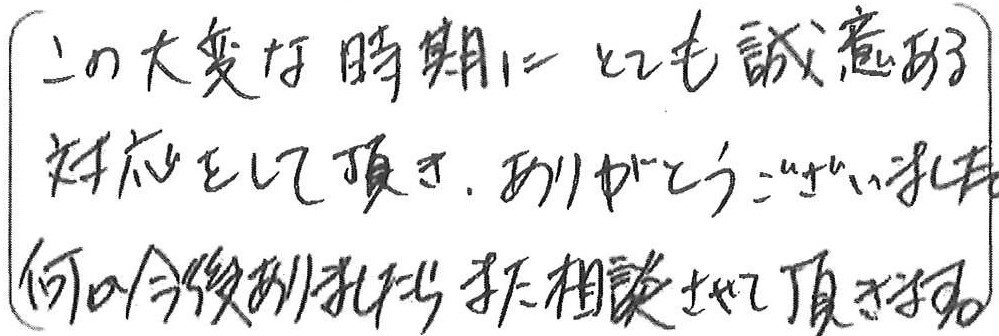 この大変な時期にとても誠意ある
対応をして頂き、ありがとうございました。
何か今後ありましたらまた相談させて頂きます。